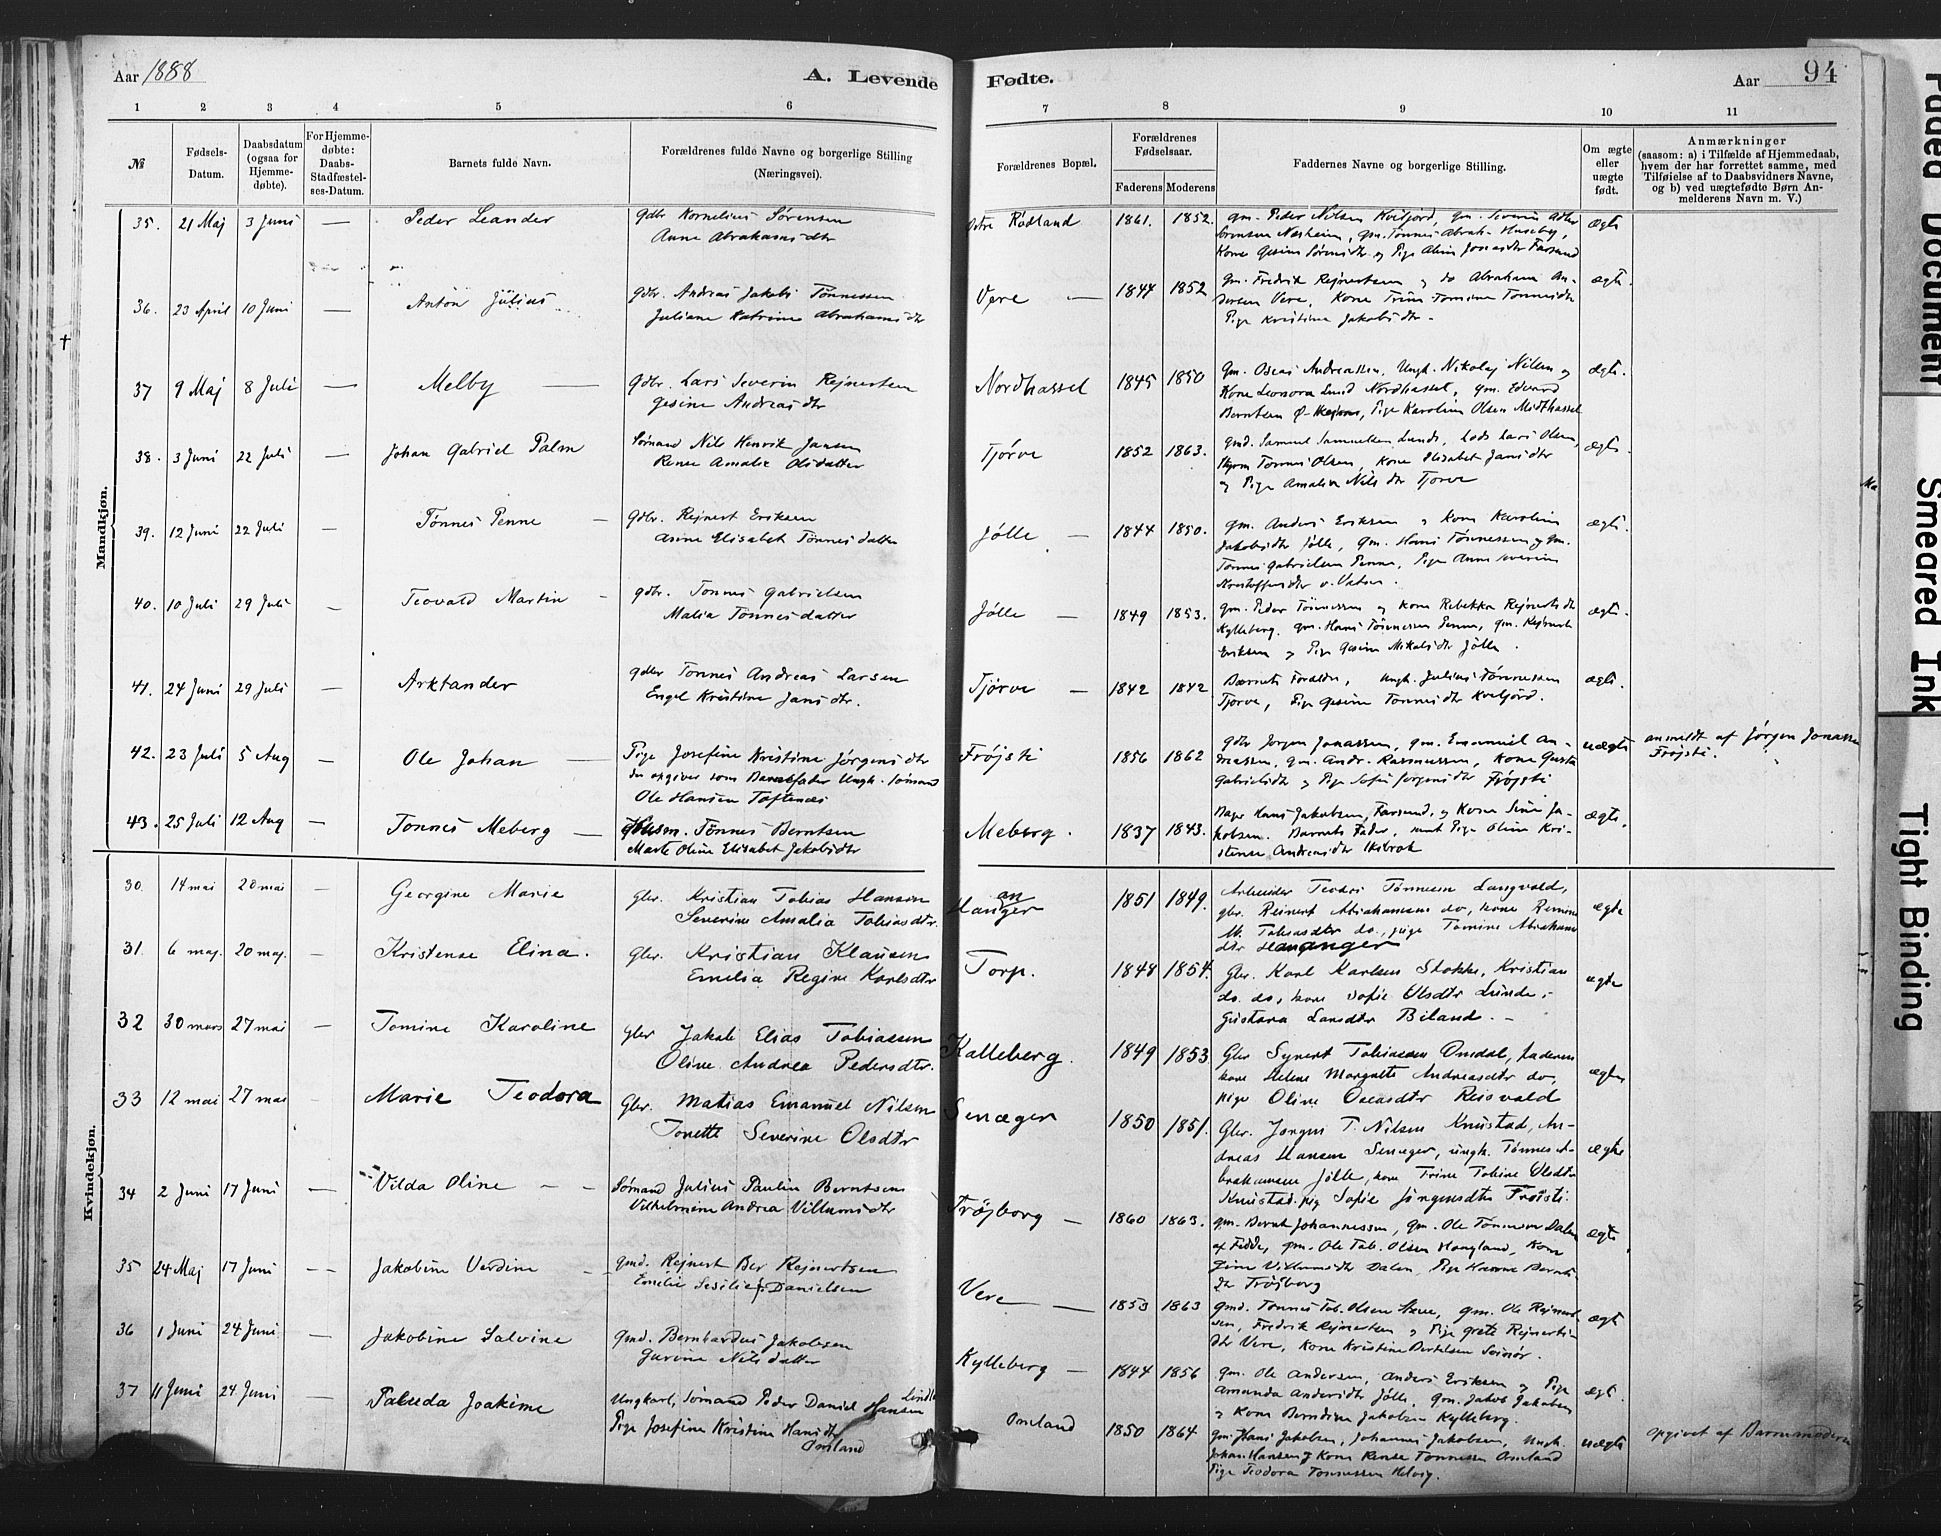 Aar 1888
A. Levende Fødte.
Aar 94
1 2 3 4 5 6 7 8 9 10 11
№
Fødsels-Datum.
Daabsdatum (ogsaa for Hjemme-døbte).
For Hjemme-døbte: Daabs-Stadfæstel-ses-Datum.
Barnets fulde Navn.
Forældrenes fulde Navne og borgerlige Stilling (Næringsvei).
Forældrenes Bopæl.
Forældrenes Fødselsaar.
Faderens Moderens
Faddernes Navne og borgerlige Stilling.
Om ægte eller uægte født.
Anmærkninger
(saasom: a) i Tilfælde af Hjemmedaab, hvem der har forrettet samme, med Tilføielse af to Daabsvidners Navne, og b) ved uægtefødte Børn An-melderens Navn m. V.)
Mandkjøn.
35. 21 Maj 3 Juni — Peder Leander
Gdbr Kornelius Sørensen
Anne Abrahamsdtr
Østre Rødland 1861. 1852.
gm. Peder Nilsen Kviljord, gm. Severin
Sørensen Næsheim, gm. Tønnes Abrah. Huseby,
Kone Gesine Sørensdtr og Pige Jonasdtr Farsund
ægte
36. 23 April 10 Juni Anton Julius
Gdbr. Andreas Jakobs Tønnessen
Juliane Katrine Abrahamsdtr
Vere — 1847 1852
gm. Fredrik Rejnertsen og do Abraham An-
dersen Vere, Kone Trine Tomine Tønnesdtr
Pige Kristine Jakobsdtr.
ægte.
37 9 Maj 8 Juli — Melby —
Gdbr. Lars Severin Rejnertsen
Gesine Andreasdtr
Nordhassel 1845 1850
gm. Oseas Andreassen, Ungk. Nikolaj Nilsen og
Kone Leonora Lund Nordhassel, gm. Edvard
Berntsen Ø-, Pige Karoline Olsen Midthassel
ægte.
38. 3 Juni 22 Juli — Johan Gabriel Palm
Sømand Nils Henrik Jansen
Rense Amalie Olsdatter
Tjørve 1852 1863.
gmd. Samuel Samuelsen Lunde, Lods Lars Olsen,
Tønnes Olsen, Kone Elisabet Jansdtr
og Pige Amalie Nilsdtr Tjørve
ægte.
39. 12 Juni 22 Juli — Tønnes Penne —
Gdbr. Rejnert Eriksen
Asine Elisabet Tønnesdatter
Jølle — 1844 1850.
gm. Anders Eriksen og Kone Karoline
Jakobsdtr Jølle, gm. Hans Tønnessen og gm.
Tønnes Gabrielsen Penne, Pige Anne Severine
Kristoffersdtr v. Vatne.
ægte.
40. 10 Juli 29 Juli — Teovald Martin —
gdbr. Tønnes Gabrielsen
Malia Tønnesdatter
Jølle — 1849 1853.
gm. Peder Tønnessen og Kone Rebekka Rejnertsdtr
Kylleberg. gm. Hans Tønnessen Penne, gm. Rejnert
Eriksen og Pige Gesine Mikalsdtr Jølle.
ægte.
41. 24 Juni 29 Juli — Arktander
gdbr Tønnes Andreas Larsen
Engel Kristine Jansdtr.
Tjørve — 1842 1842
Barnets Forældre, Ungk. Julius Tønnessen
Tjørve, Pige Gesine Tønnesdtr Kviljord.
ægte.
42. 23 Juli 5 Aug — Ole Johan —
Pige Josefine Kristine Jørgensdtr
der opgiver som Barnefader Ungk. Sømand
Ole Hansen Toftenæs
Frøjsti 1856 1862
gdbr Jørgen Jonassen, gm. Emanuel An-
dreassen, gm. Andr. Rasmussen, Kone Gusta
Gabrielsdtr og Pige Sofie Jørgensdtr Frøjsti
uægte
anmeldt af Jørgen Jonassen
Frøjsti.
43. 25 Juli 12 Aug — Tønnes Meberg —
Tønnes Berntsen
Marte Oline Elisabet Jakobsdtr
Meberg. 1837 1843.
Bager Hans Jakobsen, Farsund, og Kone Sine Ja-
kobsen. Barnets Fader, samt Pige Oline Kri-
stense Andreasdtr Ikebrok
ægte.
Kvindekjøn.
30. 14 mai 20 mai — Georgine Marie
gbr. Kristian Tobias Hansen
Severine Amalia Tobiasdtr.
Hananger 1851 1849.
Arbeider Teodor Tønnesen Langvald,
gbr. Reinert Abrahamsen do, kone
M. Tobiasdtr do., pige Tomine Abraham-
dtr Hananger
ægte
31. 6 maj. 20 maj. — Kristense Elina.
gbr. Kristian Klausen
Emelia Regine Karlsdtr
Torp. 1848 1854.
Gbr. Karl Karlsen Stokke, Kristian
do. do, kone Sofie Olsdtr Lunde,
Gustava Larsdtr Biland. —
ægte
32 30 mars 27 mai — Tomine Karoline
gbr Jakob Elias Tobiassen
Oline Andrea Pedersdtr.
Kalleberg. 1849 1853
Gbr Synert Tobiassen Omdal, faderen
kone Helene Margrette Andreasdtr do,
pige Oline Oseasdtr Reisvald
ægte
33 12 mai 27 mai Marie Teodora
Gbr. Matias Emanuel Nilsen
Tonette Severine Olsdtr
Senæger 1850 1851.
Gbr. Jørgen T. Nilsen Knustad, An-
dreas Hansen Senæger, ungk. Tønnes A-
brahamsen Jølle, kone Trine Tobine Olsdtr
Knustad. pig Sofie Jørgensdtr Frøisti.
ægte
34 2 Juni 17 Juni — Vilda Oline — —
Sømand Julius Paulin Berntsen
Vilhelmine Andrea Villumsdtr
Frøjborg — 1860 1863.
gm. Bernt Johannessen, gm. Ole Tønnesen Dalen
af Fedde, gm. Ole Tob. Olsen Haugland, Kone
Villumsdtr Dalen, Pige Hanne Bernts-
dtr Frøjborg
ægte.
35 24 Maj 17 Juni — — Jakobine Verdine —
gmd. Rejnert Ber Rejnertsen
Emelie Sesilie Danielsen
Vere — 1853 1863
gmd. Tønnes Tob. Olsen, gm. Ole Rejnert-
sen, Fredrik Rejnertsen og Pige Grete Rejnerts-
dtr Vere, Kone Kristine Bertelsen
ægte
36 1 Juni 24 Juni — Jakobine Salvine
gmd. Bernhardus Jakobsen
Gurine Nilsdatter
Kylleberg — 1844 1856
gm. Ole Andersen, Anders Eriksen og Pige
Amanda Andersdtr Jølle, gm. Jakob Jakobsen
og Kone Berndine Jakobsen Kylleberg.
ægte.
37 11 Juni 24 Juni — Paleuda Joakime
Ungkarl, Sømand Peder Daniel Hansen
Pige Josefine Kristine Hansdtr
Omland
Omland 1850 1864
gm. Hans Jakobsen, Johannes Jakobsen, Ungk.
Johan Hansen og Kone Rense Tønnessen Omland
Pige Teodora Tønnessen Helvig.
uægte
opgivet af Barnemoderen
Faded Document
Smeared Ink
Tight Binding